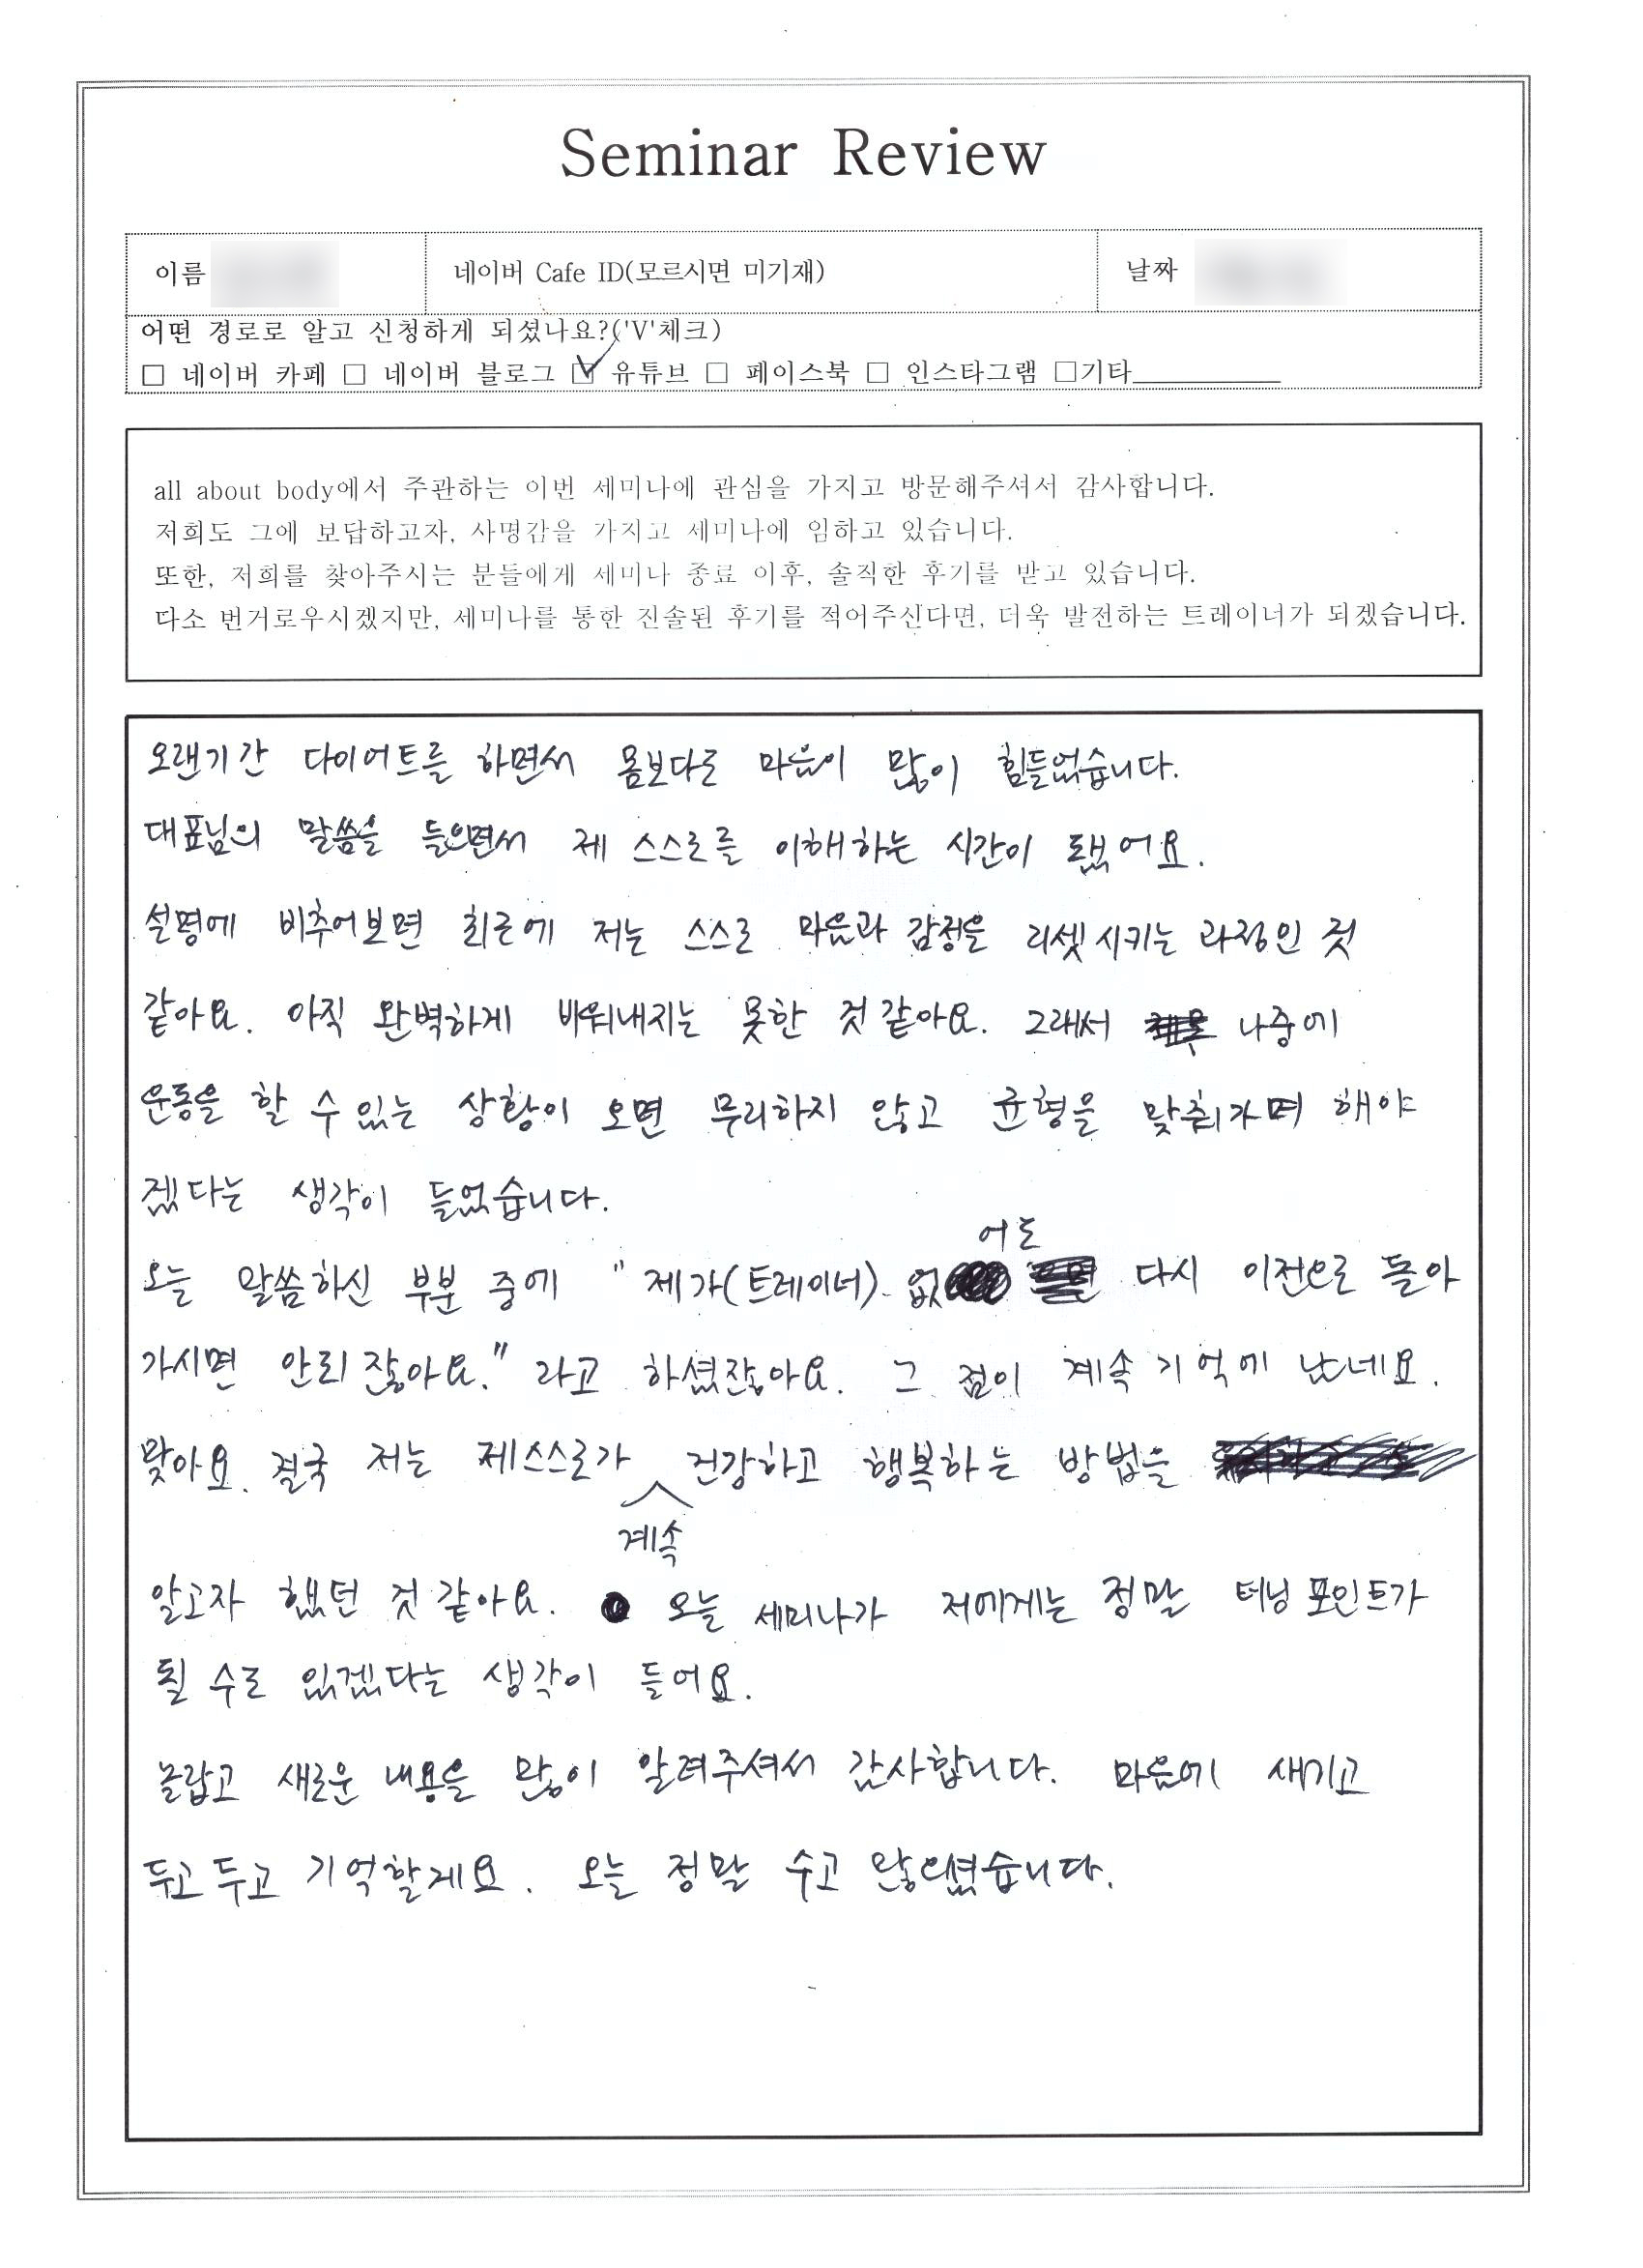 Seminar Review
이름
네이버 Cafe ID(모르시면 미기재)
날짜
어떤 경로로 알고 신청하게 되셨나요?('V'체크)
□ 네이버 카페 □ 네이버 블로그 ☑ 유튜브 □ 페이스북 □ 인스타그램 □기타
all about body에서 주관하는 이번 세미나에 관심을 가지고 방문해주셔서 감사합니다.
저희도 그에 보답하고자, 사명감을 가지고 세미나에 임하고 있습니다.
또한, 저희를 찾아주시는 분들에게 세미나 종료 이후, 솔직한 후기를 받고 있습니다.
다소 번거로우시겠지만, 세미나를 통한 진솔된 후기를 적어주신다면, 더욱 발전하는 트레이너가 되겠습니다.
오랜기간 다이어트를 하면서 몸보다도 마음이 많이 힘들었습니다.
대표님의 말씀을 들으면서 제 스스로를 이해하는 시간이 됐어요.
설명에 비추어보면 최근에 저는 스스로 마음과 감정을 리셋시키는 과정인 것
같아요. 아직 완벽하게 비워내지는 못한 것 같아요. 그래서 나중에
운동을 할 수 있는 상황이 오면 무리하지 않고 균형을 맞춰가며 해야
겠다는 생각이 들었습니다.
오늘 말씀하신 부분 중에 "제가(트레이너) 없어도 다시 이전으로 돌아
가시면 안되잖아요." 라고 하셨잖아요. 그 점이 계속 기억에 남네요.
맞아요. 결국 저는 제스스로가 계속 건강하고 행복하는 방법을
알고자 했던 것 같아요. 오늘 세미나가 저에게는 정말 터닝포인트가
될 수도 있겠다는 생각이 들어요.
놀랍고 새로운 내용을 많이 알려주셔서 감사합니다. 마음에 새기고
두고 두고 기억할게요. 오늘 정말 수고 많으셨습니다.